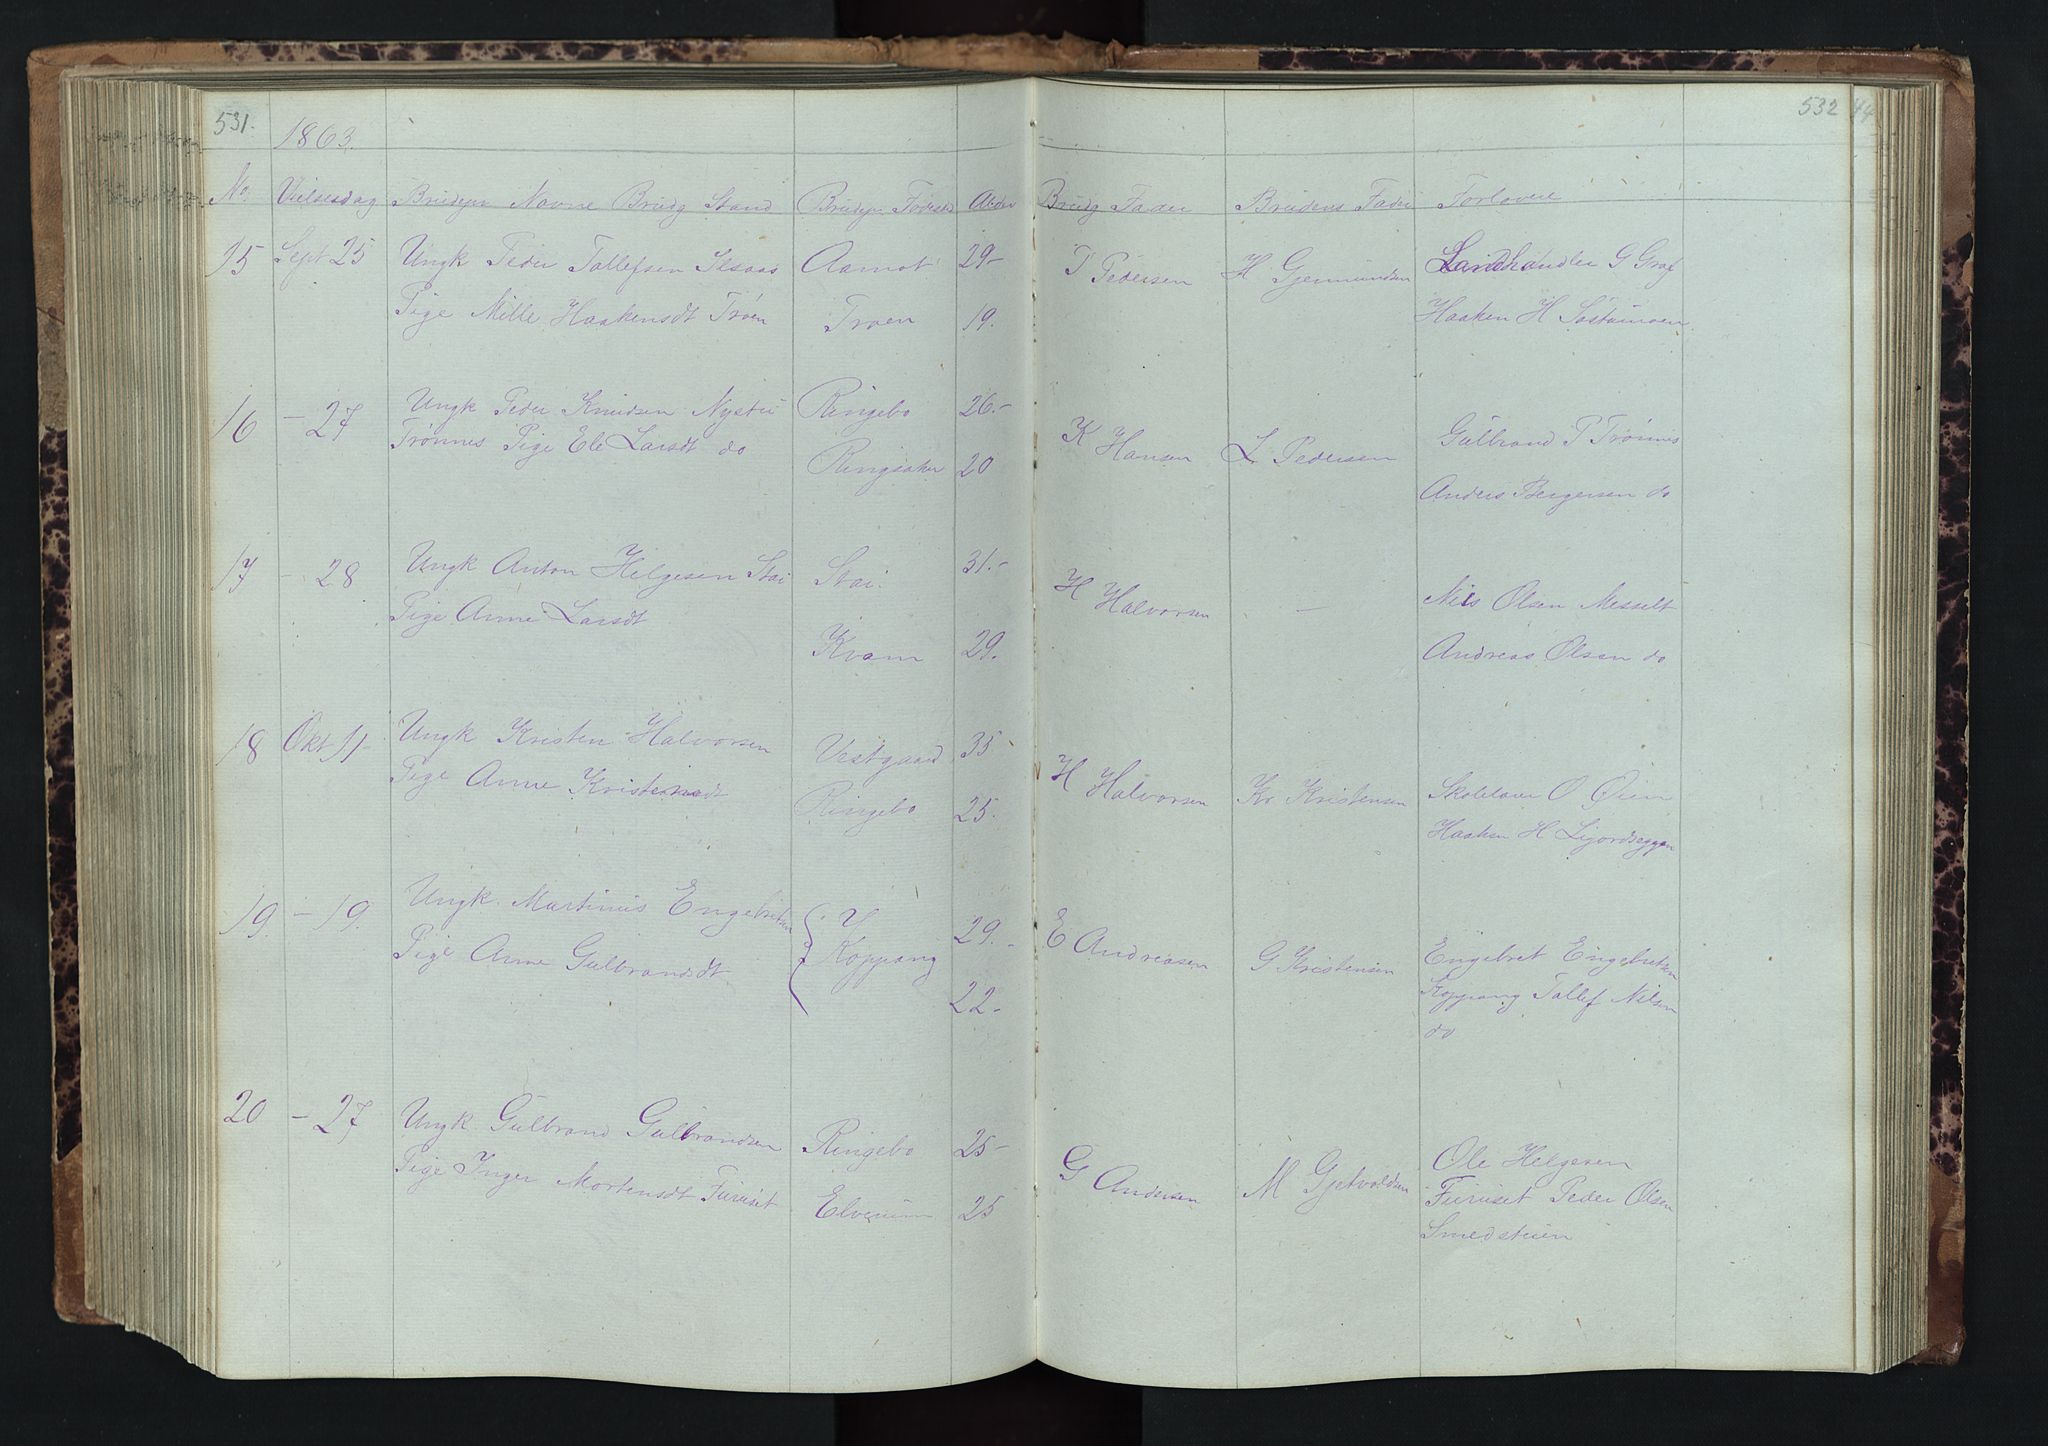 531.
1863.
No. Vielsesdag Brudepr Navne Brudg Stand Brudepr Fødested Alder
15 Sept 25 Ungk Peder Tollefsen Aamot 29-
Pige Mille Haakensdt Trøen Troen 19.
16 - 27 Ungk Peder Knudsen Nystu Ringebo 26.-
Trønnes Pige Eli Larsdt do Ringsaker 20
17 - 28 Ungk Anton Helgesen Stai Stai. 31.-
Pige Anne Larsdt
Kvam 29.
18 Okt 11- Ungk Kristen Halvorsen Vestgaard 35
Pige Anne Kristensdt Ringebo 25.
19. - 19. Ungk. Martinus Engebretsen Y Koppang 29.-
Pige Anne Gulbrandsdt
22-
20 - 27 Ungk Gulbrand Gulbrandsen Ringebo 25-
Pige Inger Mortensdt Furuset Elverum 25
532 44
Brudg Fader Brudens Fader Forlovere
T Pedersen H Gjermundsen Landhandler G Graf
Haaken H
K Hansen L Pedersen Gulbrand P Trønnes
Anders Bergersen do
H Halvorsen - Nils Olsen Messelt
Andreas Olsen do
H Halvorsen Kr Kristensen Skolelærer O Øien
Haaken H
E Andreasen G Kristensen Engebret Engebretsen
Koppang Tollef Nilsen
do
G Andersen M Ole Helgesen
Furuset Peder Olsen
Smedstuen